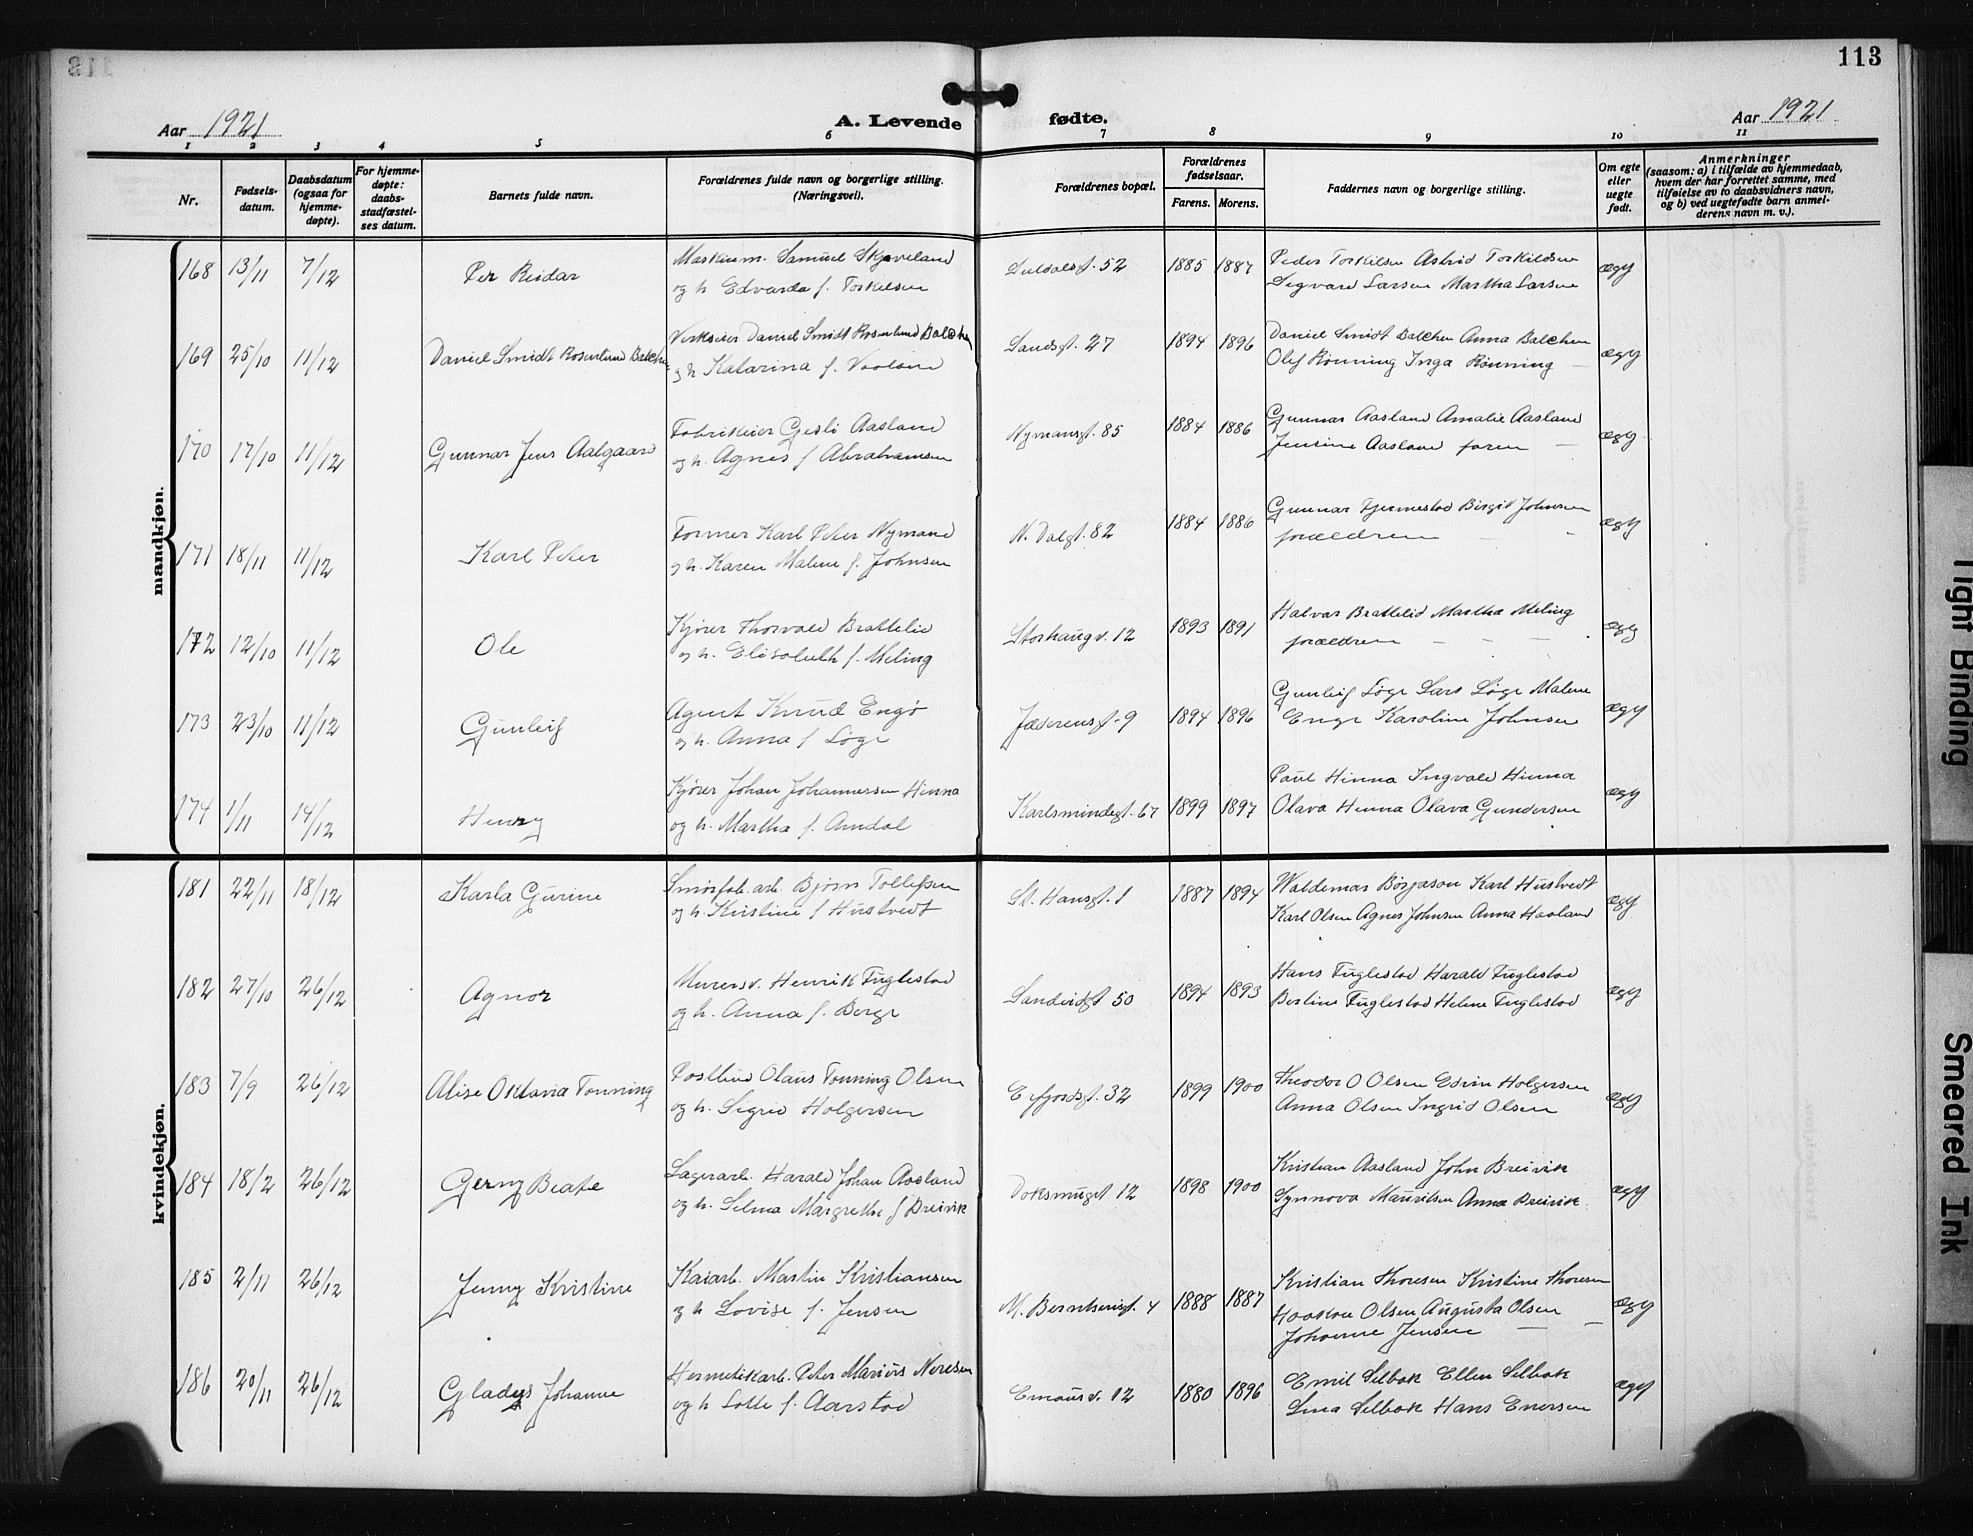 113
Aar 1921
A. Levende fødte.
Aar 1921
1 2 3 4 5 6 7 8 9 10 11
Nr.
Fødsels-
datum.
Daabsdatum
(ogsaa for
hjemme-
døpte).
For hjemme-
døpte:
daabs-
stadfæstel-
ses datum.
Barnets fulde navn.
Forældrenes fulde navn og borgerlige stilling.
(Næringsvei).
Forældrenes bopæl.
Forældrenes
fødselsaar.
Farens. Morens.
Faddernes navn og borgerlige stilling.
Om egte
eller
uegte
født.
Anmerkninger
(saasom: a) i tilfælde av hjemmedaab,
hvem der har forrettet samme, med
tilføielse av to daabsvidners navn,
og b) ved uegtefødte barn anmel-
derens navn m. v.).
mandkjøn.
168 13/11 7/12 Per Reidar
Maskinm. Samuel Skjæveland
og h. Edvarda f. Torkelsen
Suldalsgt. 52 1885 1887
Peder Torkilsen Astrid Torkildsen
Sigvard Larsen Martha Larsen
ægt
169 25/10 11/12 Daniel Smidt Rosenlund Balchen
Verkseier Daniel Smidt Rosenlund Balchen
og h. Katarina f.
Sandsgt. 27 1894 1896
Daniel Smidt Balchen Anna Balchen
Olef Rønning Inga Rønning
ægt
170 17/10 11/12 Gunnar Jens Aalgaard
Fabrikeier Gesli Aasland
og h. Agnes f. Abrahamsen
Nymansgt. 85 1884 1886
Gunnar Aasland Amalie Aasland
Jensine Aasland faren
ægt
171 18/11 11/12 Karl Peter
Former Karl Peter Nymand
og h. Karen Malene f. Johnsen
N. Dalgt. 82 1884 1886
Gunnar Tjermestad Birgit Johnsen
forældren
ægt
172 12/10 11/12 Ole
Kjører Thorvald Brattelid
og h. Elisabeth f. Meling
Storhaugv. 12 1893 1891
Halvar Brattelid Martha Meling
forældren
ægt
173 23/10 11/12 Gunleif
Agent Knud Engø
og h. Anna f. Løge
Jæderensgt. 9 1894 1896
Gunleif Løge Lars Løge Malene
Enge Karoline Johnsen
ægt
174 1/11 14/12 Henry
Kjører Johan Johannessen Hinna
og h. Martha f. Amdal
Karlsmindegt. 67 1899 1897
Paul Hinna Ingvald Hinna
Olava Hinna Olava Gundersen
ægt
kvindekjøn.
181 22/11 18/12 Karla Gurine
Smørfab. arb. Bjørn Tollefsen
og h. Kristine f. Hustvedt
St. Hansgt. 1 1887 1894
Waldemar Børjason Karl Hustvedt
Karl Olsen Agnes Johnsen Anna Haaland
ægt
182 27/10 26/12 Agnor
Murersv. Henrik Fuglestad
og h. Anna f. Berge
Sandvidgt 50 1894 1893
Hans Fuglestad Harald Fuglestad
Bertine Fuglestad Helene Fuglestad
ægt
183 7/9 26/12 Alise Oktavia Tonning
Postbud Olaus Tonning Olsen
og h. Sigrid Holgersen
Eifjordsgt. 32 1899 1900
Theodor O Olsen Edvin Holgersen
Anna Olsen Ingrid Olsen
ægt
184 18/2 26/12 Gerny Beate
Lagerarb. Harald Johan Aasland
og h. Selma Margrethe f Breivik
Doksmugt 12 1898 1900
Kristian Aasland John Breivik
Synnøva Mauritsen Anna Breivik
ægt
185 2/11 26/12 Jenny Kristine
Kaiarb. Martin Kristiansen
og h Lovise f. Jensen
N. Berntsensgt. 4 1888 1887
Kristian Thoresen Kristine Thoresen
Haakon Olsen Augusta Olsen
Johanne Jensen
ægt
186 20/11 26/12 Gladys Johanne
Hermetikarb. Peter Marius Neresen
og h Lotte f. Aarstad
Emausv. 12 1880 1896
Emil Selbak Ellen Selbak
Lina Selbak Hans Enersen
ægt
Tight Binding
Smeared Ink